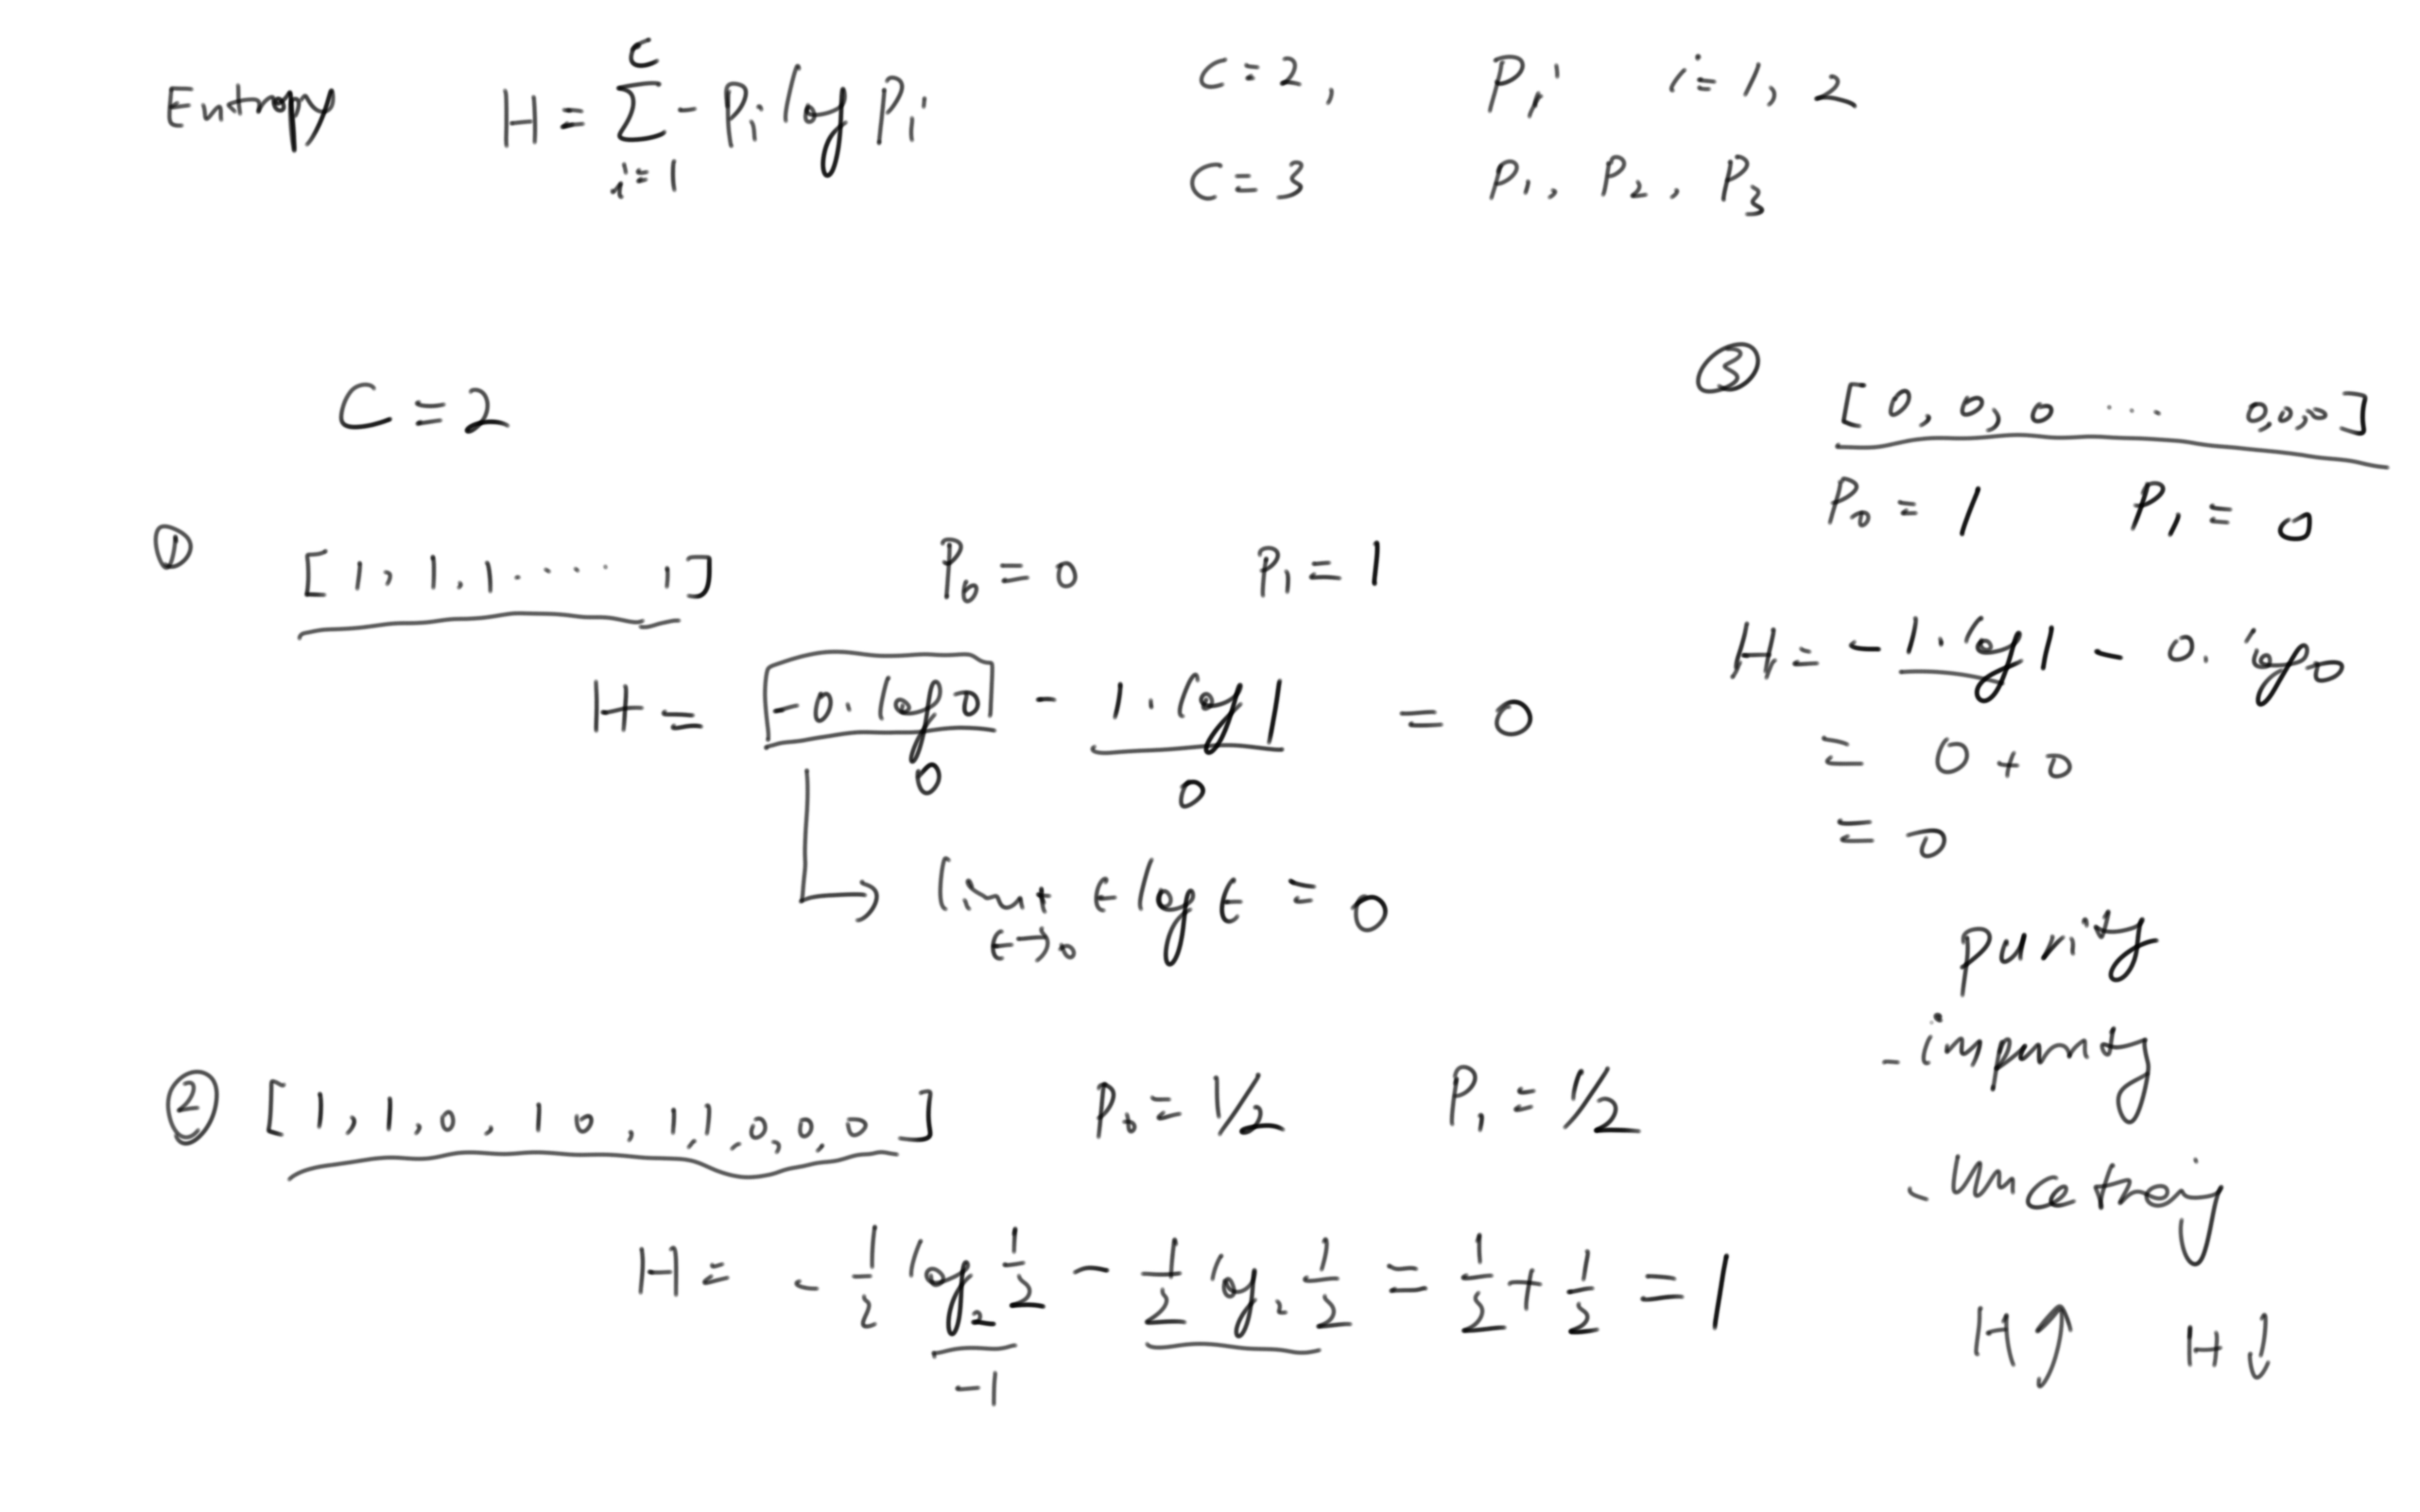 Entropy H = \sum_{i=1}^{C} - P_i log P_i C = 2, P_i i = 1, 2
C = 3 P_1, P_2, P_3
C = 2
① [1, 1, 1 .... 1] P_0 = 0 P_1 = 1
H = -0 · log 0 - 1 · log 1 = 0
0 0
limt ε log ε = 0
ε→0
② [1, 1, 0, 1 0, 1 1, 0, 0, 0] P_0 = 1/2 P_1 = 1/2
H = - 1/2 log_2 1/2 - 1/2 log_2 1/2 = 1/2 + 1/2 = 1
-1
③ [0, 0, 0 ... 0, 0, 0]
P_0 = 1 P_1 = 0
H = - 1 · log 1 - 0 · log 0
= 0 + 0
= 0
purity
- impurity
H↑ H↓